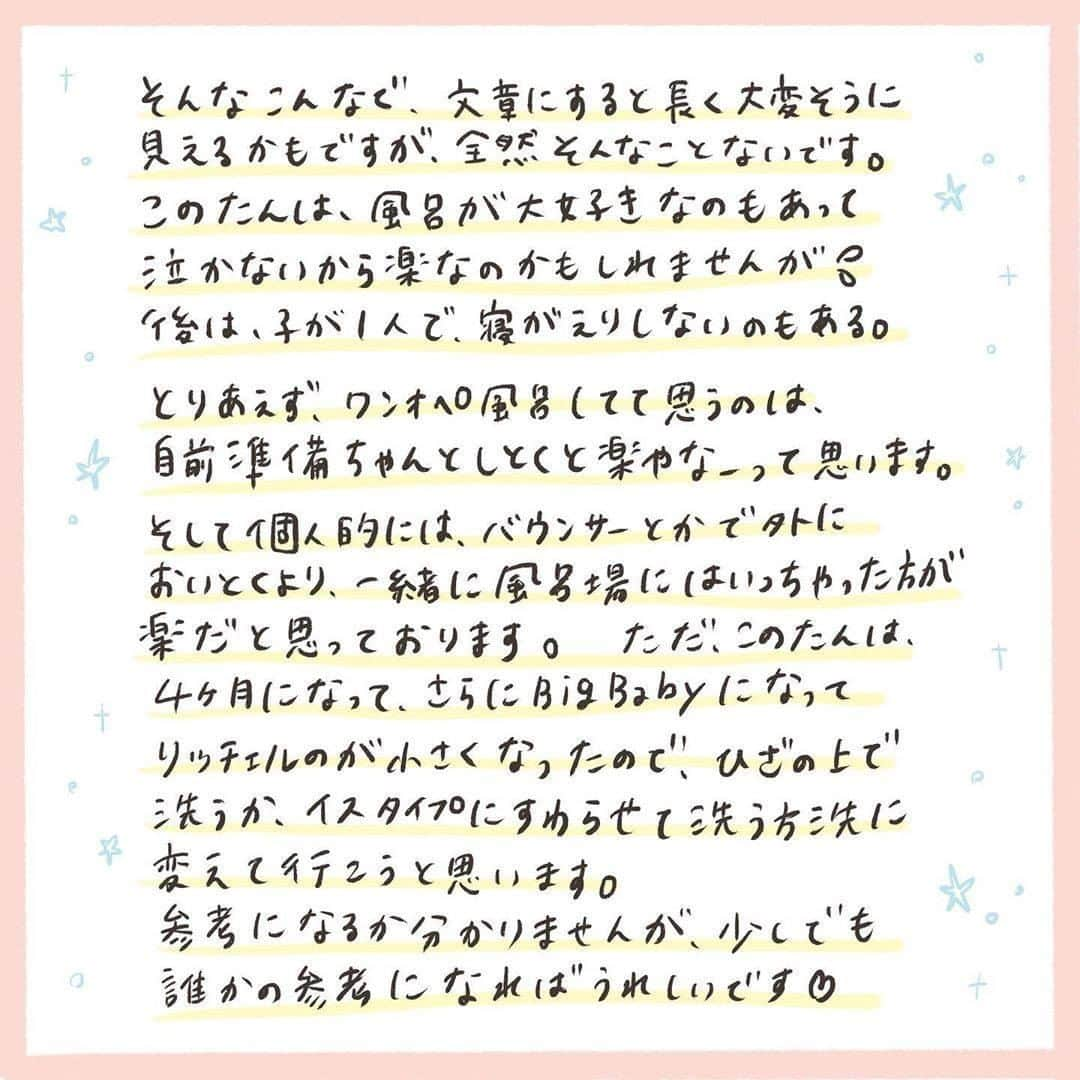 そんなこんなで、文章にすると長く大変そうに
見えるかもですが、全然そんなことないです。
このたんは、風呂が大好きなのもあって
泣かないから楽なのかもしれませんが!!
後は、子が1人で、寝がえりしないのもある。
とりあえず、ワンオペ風呂してて思うのは、
自前準備ちゃんとしとくと楽やなーって思います。
そして個人的には、バウンサーとかで外に
おいとくより、一緒に風呂場にはいっちゃった方が
楽だと思っております。 ただ、このたんは、
4ヶ月になって、さらにBigBabyになって
リッチェルのが小さくなったので、ひざの上で
洗うか、イスタイプにすわらせて洗う方洗に
変えて行こうと思います。
参考になるか分かりませんが、少しでも
誰かの参考になればうれしいです♡